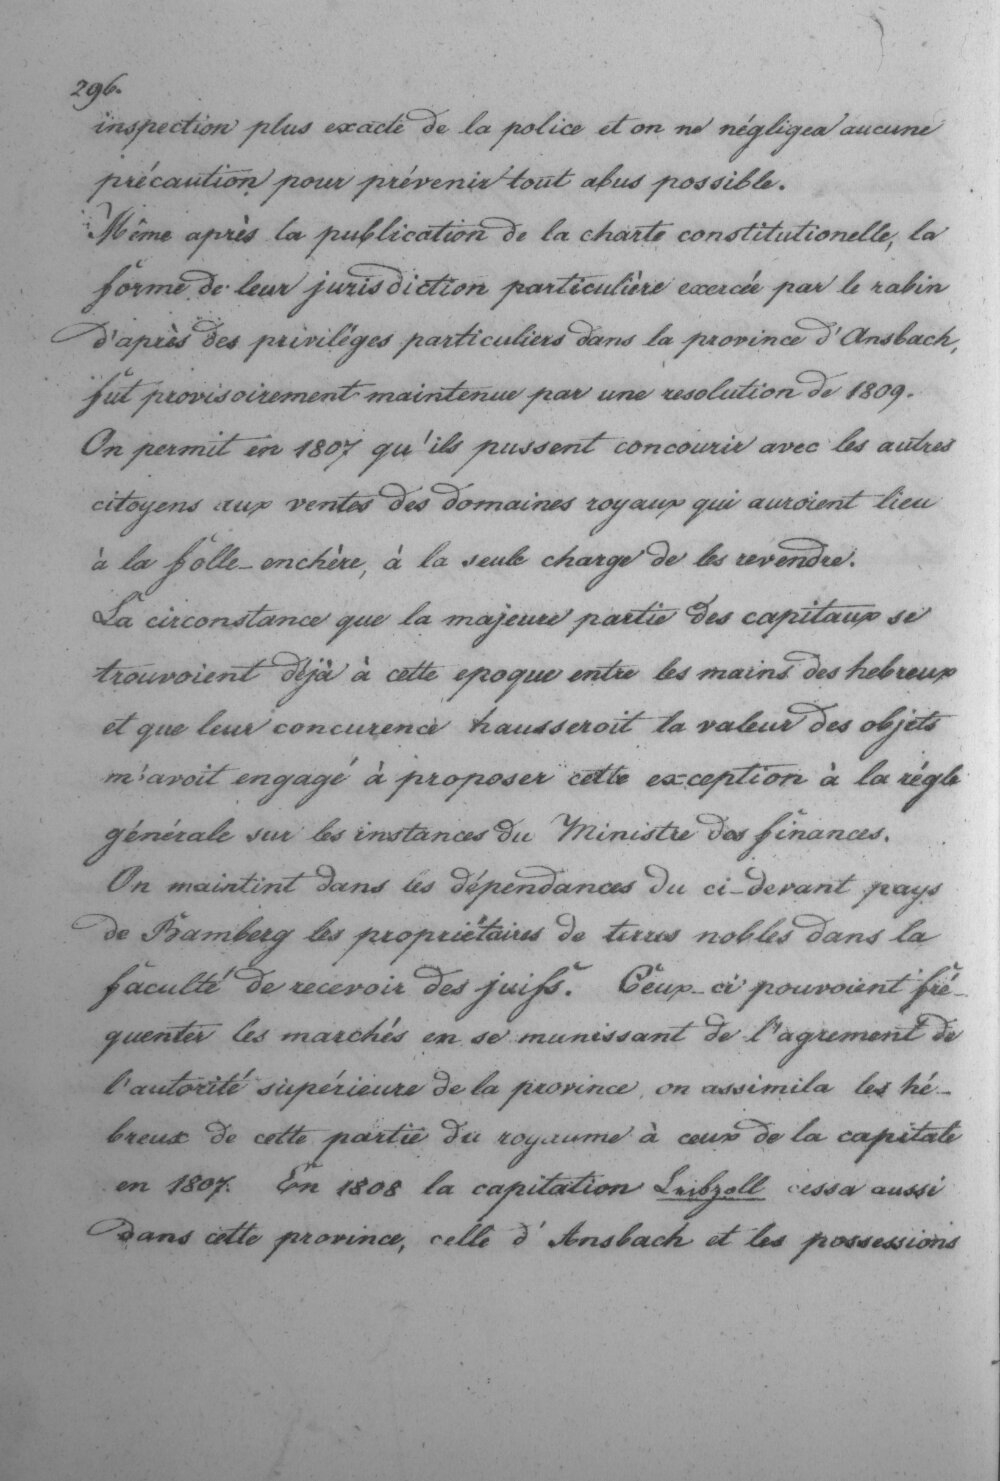 296.
inspection plus exacte de la police et on ne négligea aucune
précaution pour prévenir tout abus possible.
Même après la publication de la charte constitutionelle, la
forme de leur jurisdiction particulière exercée par le rabin
d'après des priviléges particuliers dans la province d'Ansbach,
fut provisoirement maintenue par une resolution de 1809.
On permit en 1807 qu'ils pussent concourir avec les autres
citoyens aux ventes des domaines royaux qui auroient lieu
à la folle-enchère, à la seule charge de les revendre.
La circonstance que la majeure partie des capitaux se
trouvoient déjà à cette epoque entre les mains des hebreux
et que leur concurence hausseroit la valeur des objets
m'avoit engagé à proposer cette exception à la régle
générale sur les instances du Ministre des finances.
On maintint dans les dépendances du ci-devant pays
de Bamberg les propriétaires de terres nobles dans la
faculté de recevoir des juifs. Ceux-ci pouvoient fré-
quenter les marchés en se munissant de l'agrement de
l'autorité supérieure de la province, on assimila les hé-
breux de cette partie du royaume à ceux de la capitale
en 1807. En 1808 la capitation Leibzoll cessa aussi
dans cette province, celle d'Ansbach et les possessions